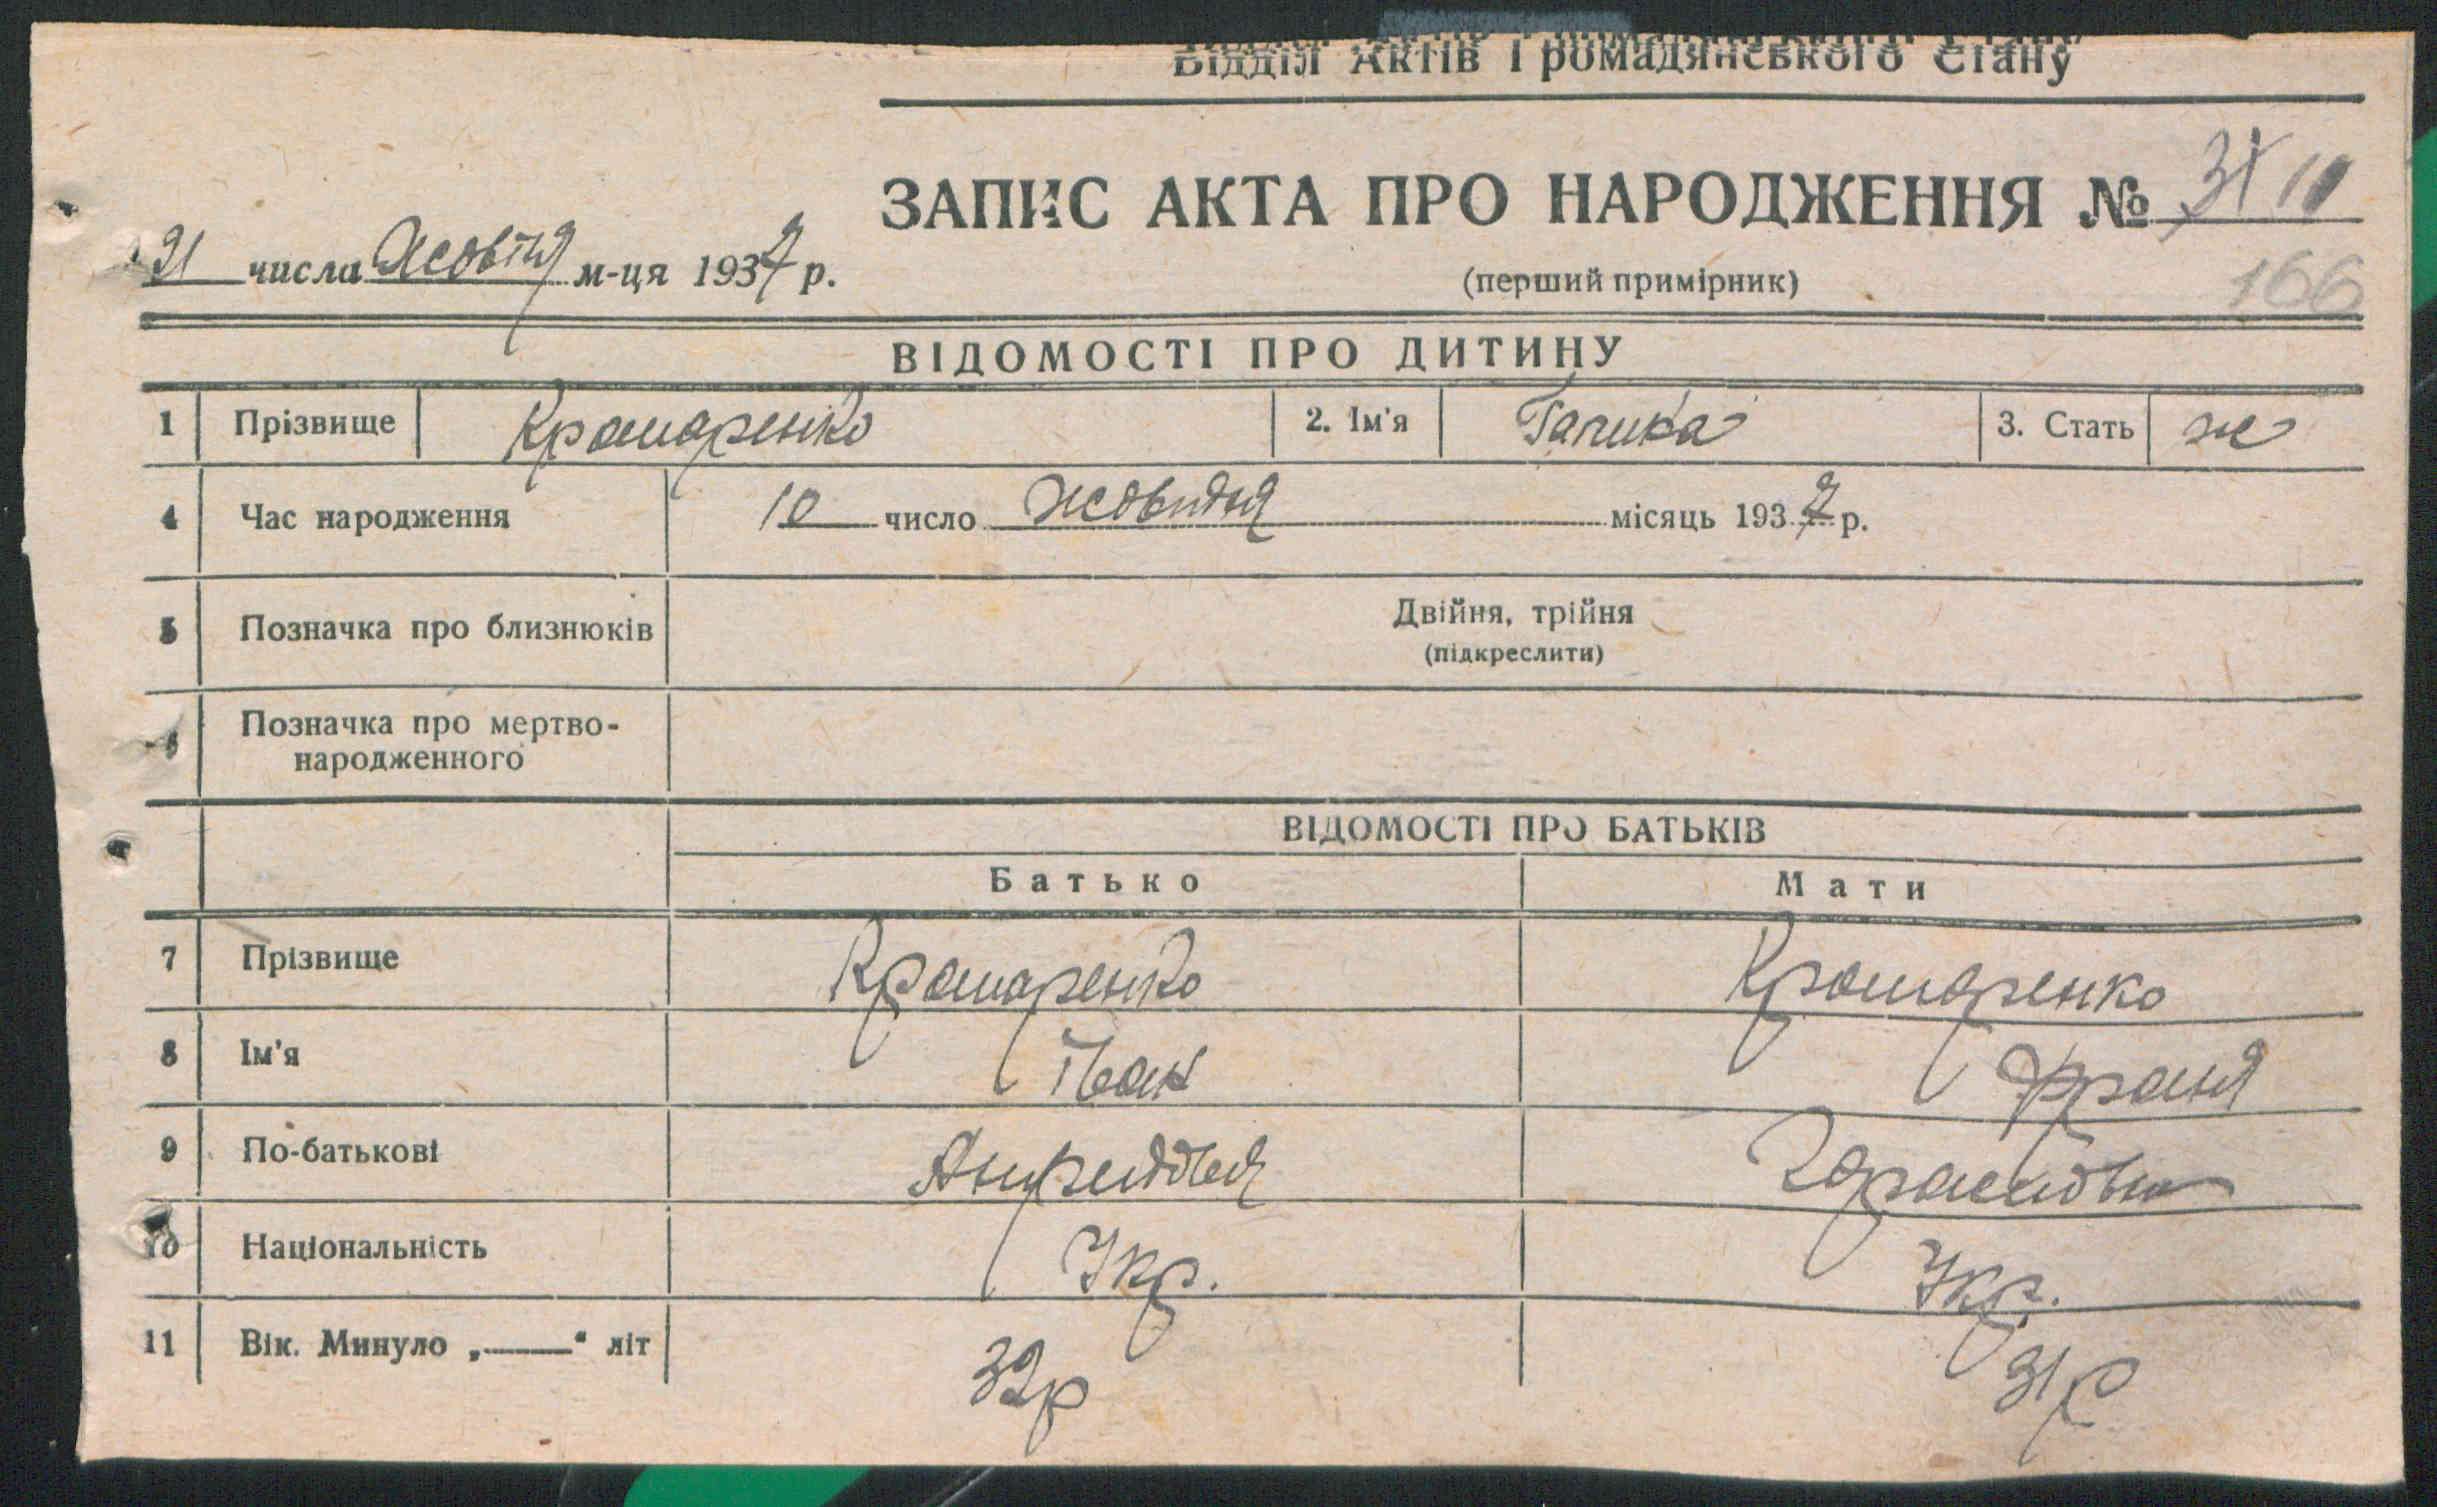 Відділ Актів Громадянського Стану
ЗАПИС АКТА ПРО НАРОДЖЕННЯ №
21 числа Жовтня м-ця 1937 р.
(перший примірник)
166
ВІДОМОСТІ ПРО ДИТИНУ
1 Прізвище Крамаренко 2. Ім'я Галика 3. Стать ж
4 Час народження 10 число жовтня місяць 1937 р.
5 Позначка про близнюків Двійня, трійня
(підкреслити)
6 Позначка про мертво-
народженного
ВІДОМОСТІ ПРО БАТЬКІВ
Батько Мати
7 Прізвище Крамаренко Крамаренко
8 Ім'я Іван Франя
9 По-батькові
10 Національність Укр. Укр.
11 Вік. Минуло „——“ літ 32р 31р